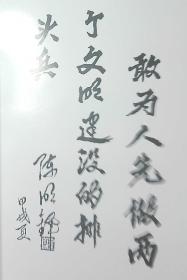 敢为人先做两
个文明建设的排
头兵
陈明
甲戌夏